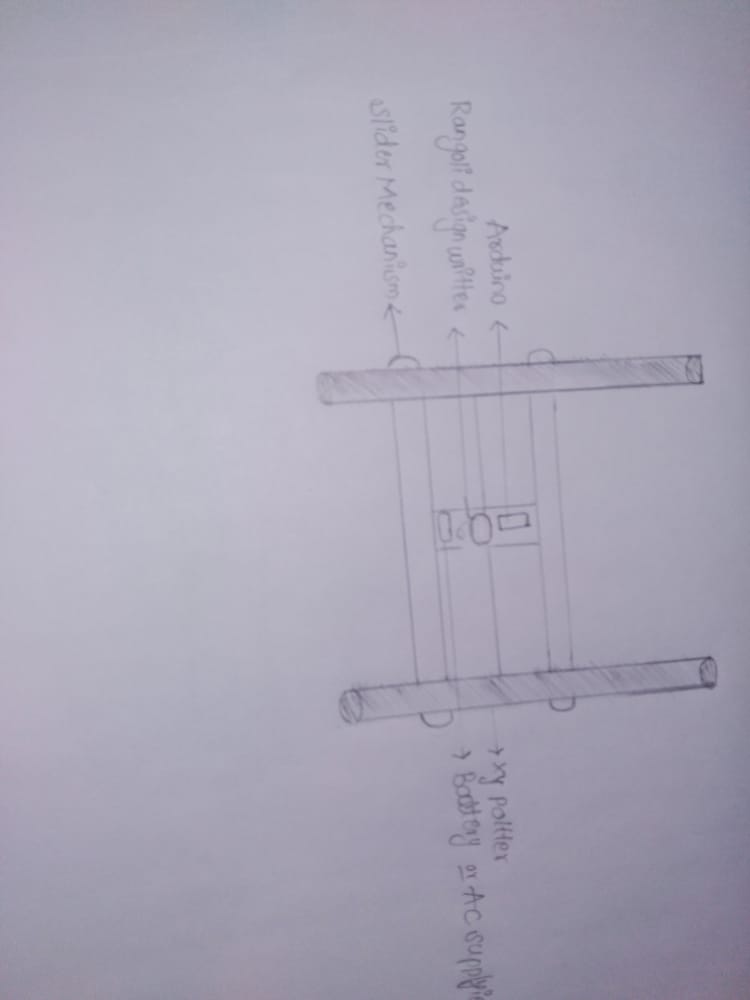 Arduino
Rangoli design writter
Slider Mechanism
xy poltter
Battery or AC supply